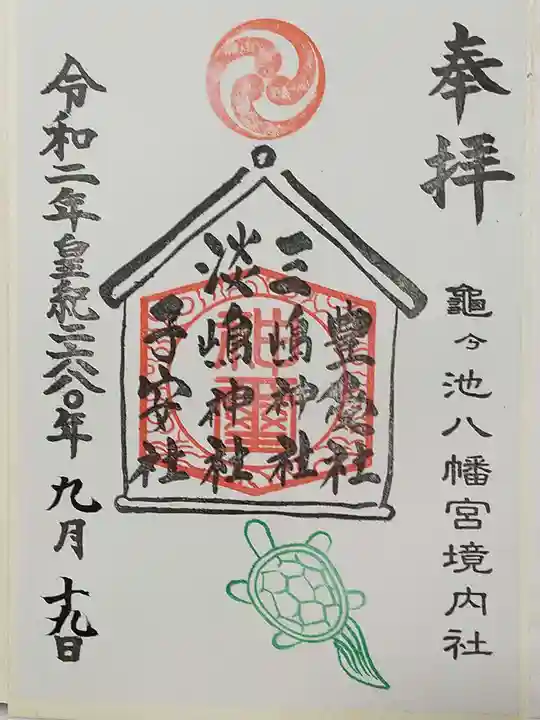 奉拝
龜ヶ池八幡宮境内社
三嶋神社
淡嶋神社
子安社
令和二年皇紀二六八〇年九月十九日